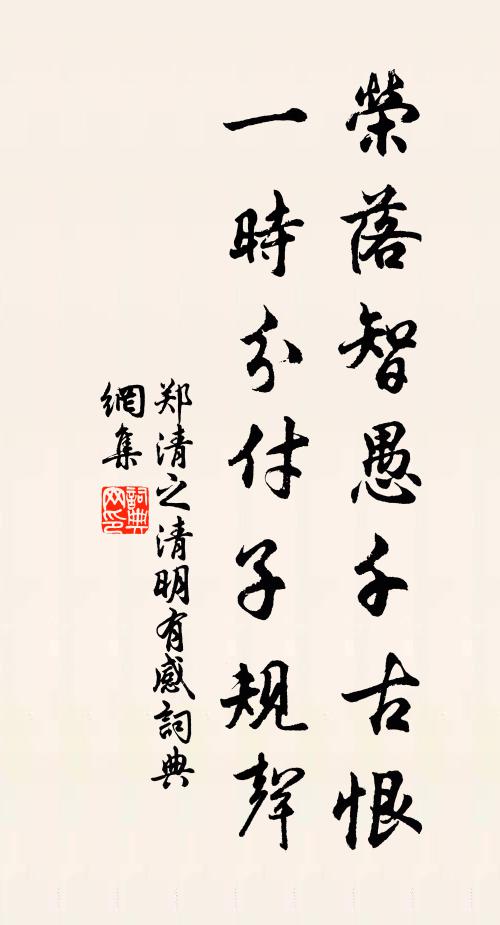 榮落智愚千古恨
一時分付子規聲
郑清之清明有感詞典
網集
詞典
网印